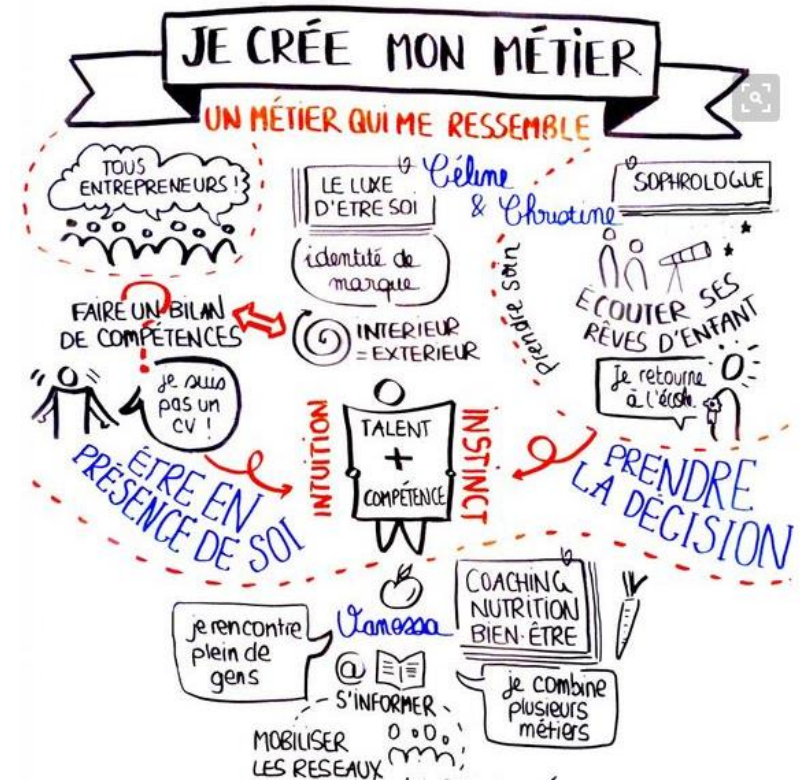 JE CRÉE MON MÉTIER
UN MÉTIER QUI ME RESSEMBLE
TOUS
ENTREPRENEURS !
LE LUXE
D'ETRE SOI
Céline
& Christine
SOPHROLOGUE
identité de
marque
prendre soin
ÉCOUTER SES
RÊVES D'ENFANT
FAIRE UN BILAN
DE COMPÉTENCES
?
INTERIEUR
= EXTERIEUR
je suis
pas un
CV !
Je retourne
à l'école
INTUITION
TALENT
+
COMPÉTENCE
INSTINCT
ÊTRE EN
PRÉSENCE DE SOI
PRENDRE
LA DÉCISION
COACHING
NUTRITION
BIEN-ÊTRE
Vanessa
je rencontre
plein de
gens
@
S'INFORMER
je combine
plusieurs
métiers
MOBILISER
LES RESEAUX